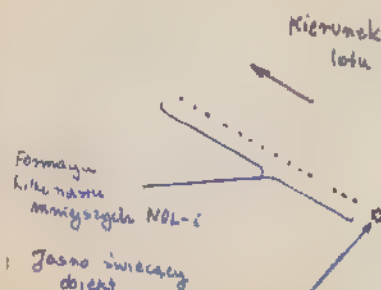 Kierunek
lotu
Formacja
kilkunastu
mniejszych NOL-i
Jasno świecący
obiekt